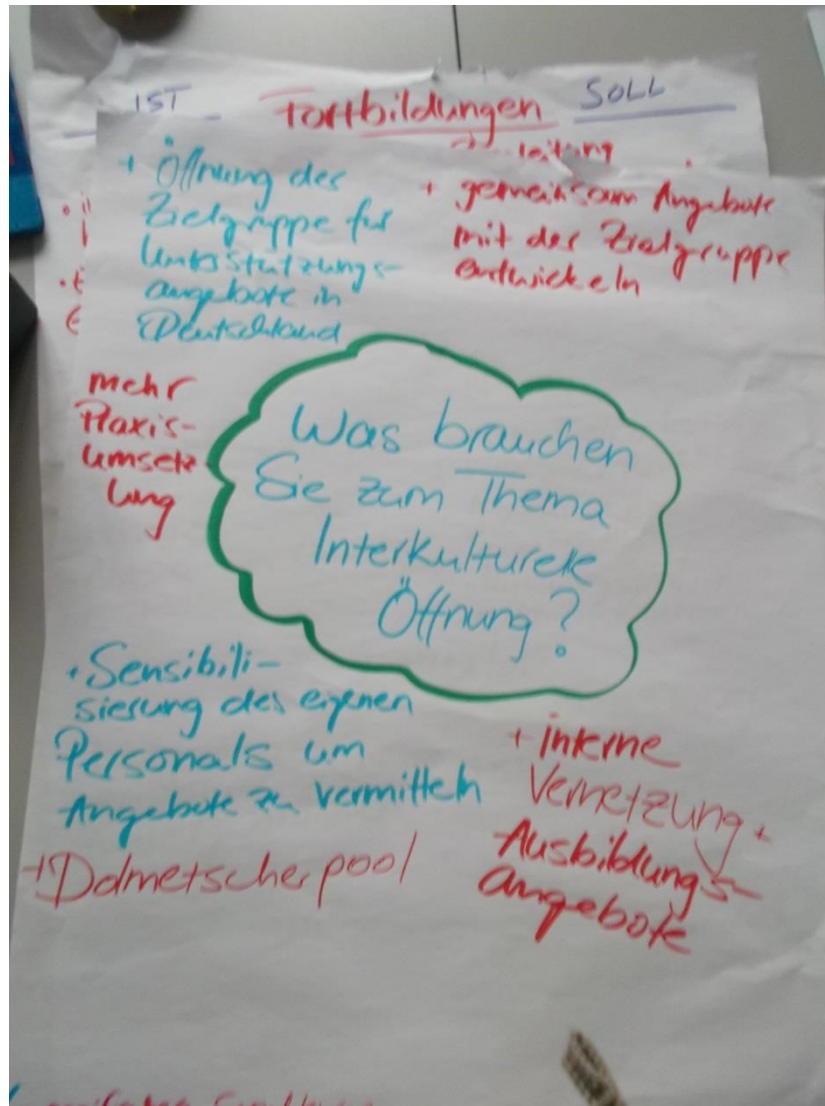 IST
SOLL
Fortbildungen
+ Öffnung der
Zielgruppe für
Unterstützungs-
angebote in
Deutschland
+ gemeinsam Angebote
mit der Zielgruppe
entwickeln
mehr
Praxis-
umsetz
ung
Was brauchen
Sie zum Thema
Interkulturelle
Öffnung?
+ Sensibili-
sierung des eigenen
Personals um
Angebote zu vermitteln
+ Dolmetscherpool
+ interne
Vernetzung +
Ausbildungs-
angebote